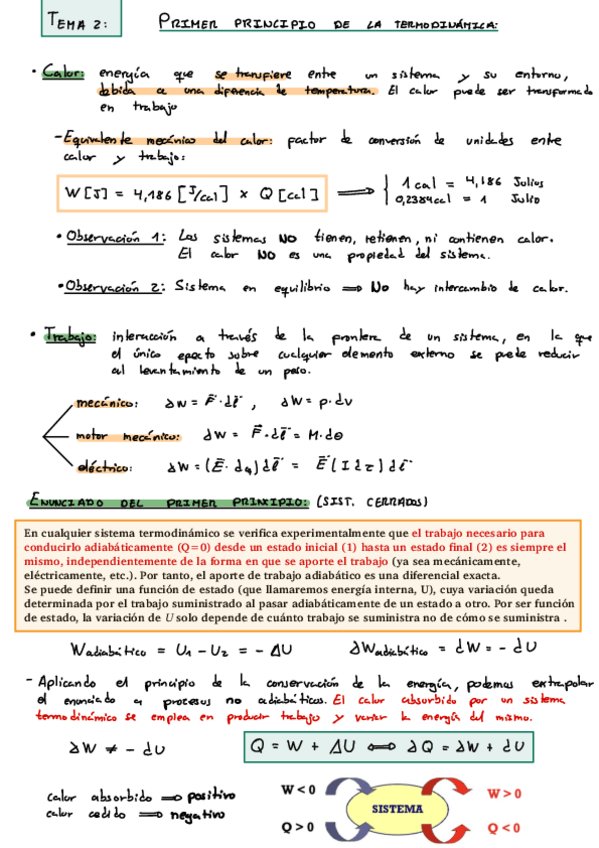 TEMA 2: PRIMER PRINCIPIO DE LA TERMODINÁMICA:
• Calor: energía que se transfiere entre un sistema y su entorno,
debida a una diferencia de temperatura. El calor puede ser transformado
en trabajo
- Equivalente mecánico del calor: factor de conversión de unidades entre
calor y trabajo:
W [J] = 4,186 [J/cal] x Q [cal] ⟹ { 1 cal = 4,186 Julios
0,2384 cal = 1 Julio
• Observación 1: Los sistemas NO tienen, retienen, ni contienen calor.
El calor NO es una propiedad del sistema.
• Observación 2: Sistema en equilibrio ⟹ No hay intercambio de calor.
• Trabajo: interacción a través de la frontera de un sistema, en la que
el único efecto sobre cualquier elemento externo se puede reducir
al levantamiento de un peso.
mecánico: ∂W = F⃗·dl⃗ , ∂W = p·dv
motor mecánico: ∂W = F⃗·dl⃗ = M·dθ
eléctrico: ∂W = (E⃗·dq) dl⃗ = E⃗(I dτ) dl⃗
ENUNCIADO DEL PRIMER PRINCIPIO: (SIST. CERRADOS)
En cualquier sistema termodinámico se verifica experimentalmente que el trabajo necesario para
conducirlo adiabáticamente (Q=0) desde un estado inicial (1) hasta un estado final (2) es siempre el
mismo, independientemente de la forma en que se aporte el trabajo (ya sea mecánicamente,
eléctricamente, etc.). Por tanto, el aporte de trabajo adiabático es una diferencial exacta.
Se puede definir una función de estado (que llamaremos energía interna, U), cuya variación queda
determinada por el trabajo suministrado al pasar adiabáticamente de un estado a otro. Por ser función
de estado, la variación de U solo depende de cuánto trabajo se suministra no de cómo se suministra .
Wadiabático = U1 - U2 = - ΔU ∂Wadiabático = dW = - dU
- Aplicando el principio de la conservación de la energía, podemos extrapolar
el enunciado a procesos no adiabáticos. El calor absorbido por un sistema
termodinámico se emplea en producir trabajo y variar la energía del mismo.
∂W ≠ - dU Q = W + ΔU ⟺ ∂Q = ∂W + dU
calor absorbido ⟹ positivo
calor cedido ⟹ negativo
W < 0 W > 0
SISTEMA
Q > 0 Q < 0